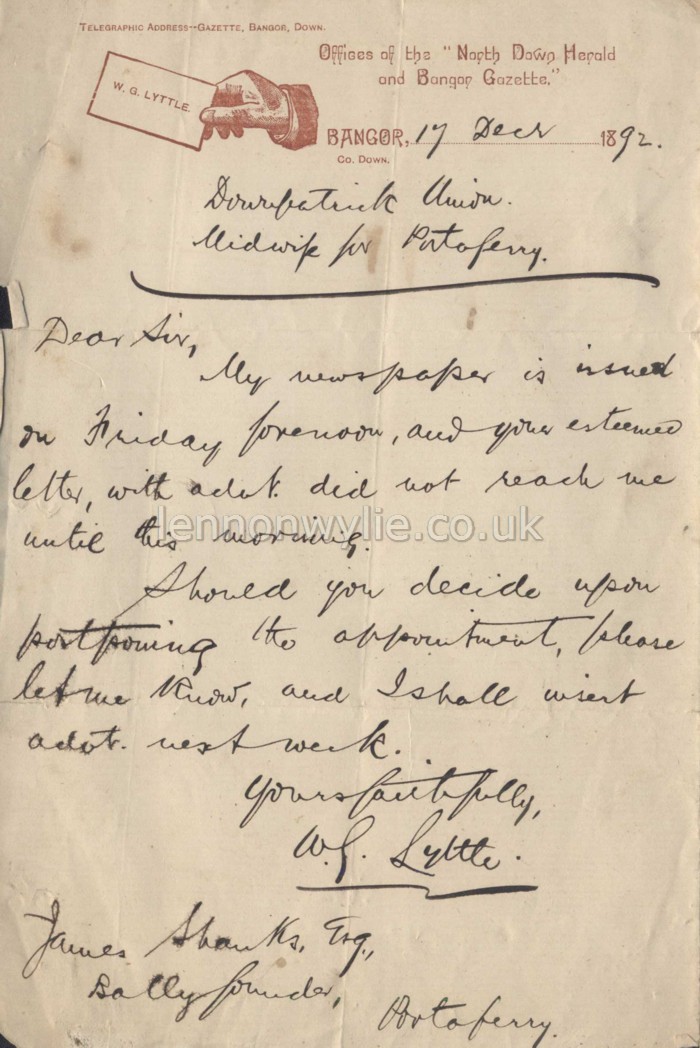 TELEGRAPHIC ADDRESS--GAZETTE, BANGOR, DOWN.
Offices of the "North Down Herald
and Bangor Gazette."
W. G. LYTTLE.
BANGOR, 17 Decr 1892.
CO. DOWN.
Downpatrick Union.
Midwife for Portaferry.
Dear Sir,
My newspaper is issued
on Friday forenoon, and your esteemed
letter, with advt. did not reach me
until this morning.
lennonwylie.co.uk
Should you decide upon
postponing the appointment, please
let me know, and I shall insert
advt. next week.
Yours faithfully,
W. G. Lyttle.
James Shanks, Esq.,
Ballyfounder,
Portaferry.